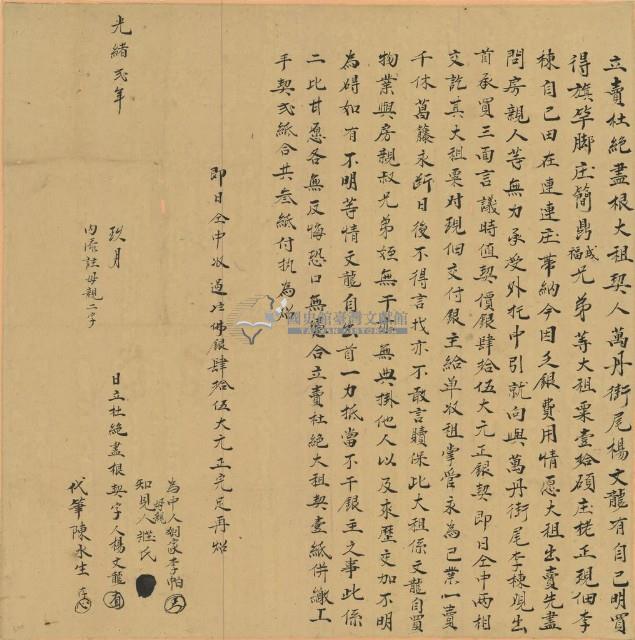 立賣杜絕盡根大租契人萬丹街尾楊文龍有自己明買
得旗竿脚庄簡鼎成福兄弟等大租粟壹拾碩庄栳正現佃李
棟自己田在連連庄帶納今因乏銀費用情愿大租出賣先盡
問房親人等無力承受外托中引就向與萬丹街尾李棟覎出
首承買三面言議時值契價銀肆拾伍大元正銀契即日仝中兩相
交訖其大租粟對現佃交付銀主給单收租掌管永為己業一賣
千休葛藤永斷日後不得言找亦不敢言贖保此大租係文龍自買
物業與房親叔兄弟姪無干亦無典掛他人以及來歷交加不明
為碍如有不明等情文龍自出首一力抵當不干銀主之事此係
二比甘愿各無反悔恐口無憑合立賣杜絕大租契壹紙併繳上
手契弍紙合共叁紙付执為炤
即日仝中收過佛銀肆拾伍大元正完足再炤
為中人 李帕
知見人母親 氏
日立杜絕盡根契字人楊文龍
代筆陳永生
光緒弍年 玖月
內添註母親二字
國史館臺灣文獻館
TAIWAN HISTORICA